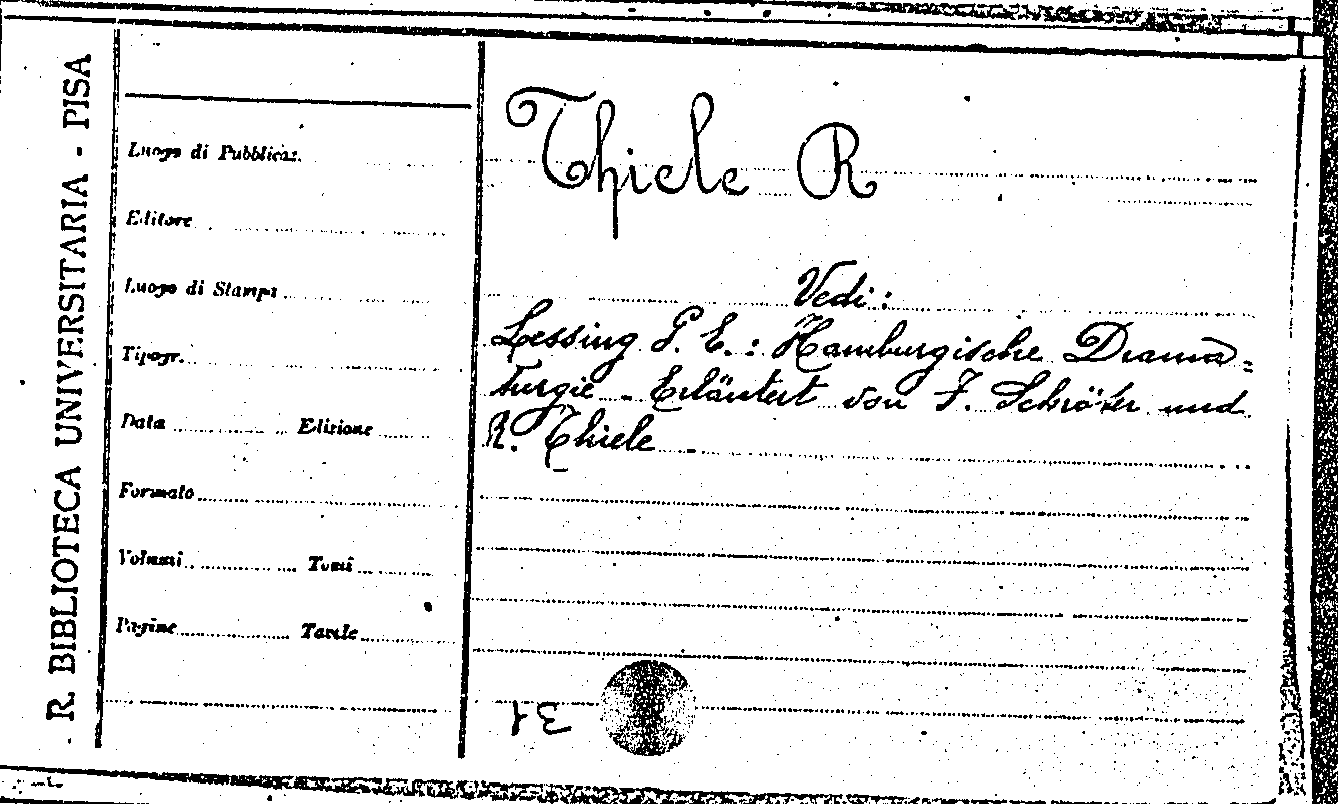 R. BIBLIOTECA UNIVERSITARIA - PISA
Luogo di Pubblicaz.
Editore
Luogo di Stampa
Tipogr.
Data Edizione
Formato
Volumi Tomi
Pagine Tavole
Thiele R
Vedi:
Lessing G. E.: Hamburgische Drama=
turgie - Erläutert von F. Schröter und
R. Thiele
31